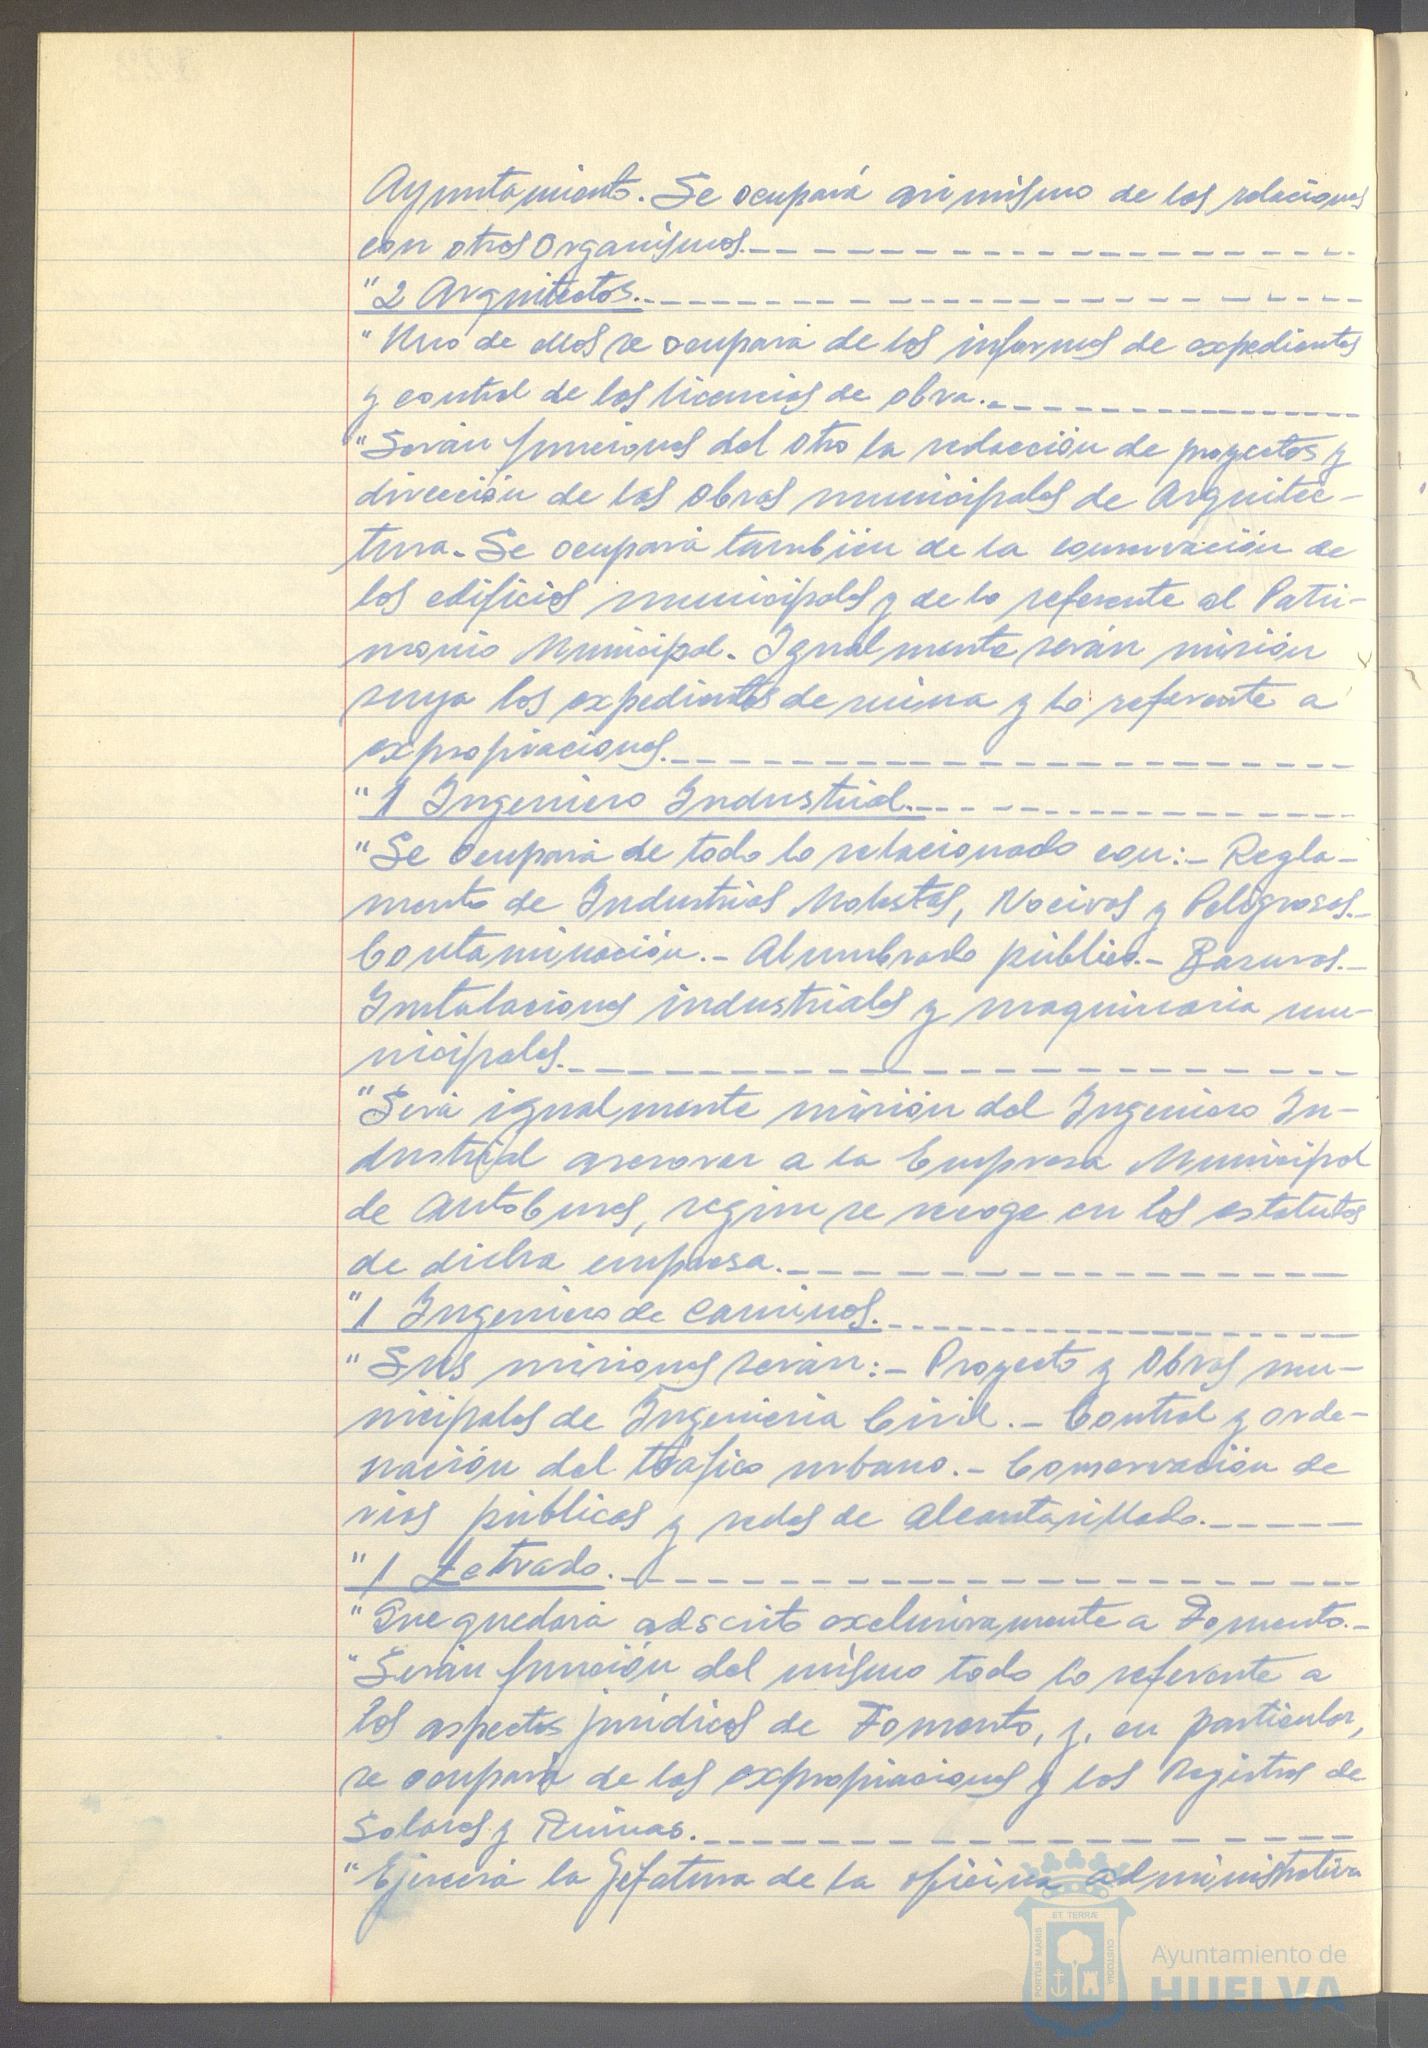 Ayuntamiento. Se ocupará asimismo de las relaciones
con otros Organismos.
"2 Arquitectos.
"Uno de ellos se ocupará de los informes de expedientes
y control de las licencias de obra.
"Serán funciones del otro la redacción de proyectos y
dirección de las obras municipales de Arquitec-
tura. Se ocupará también de la conservación de
los edificios municipales y de lo referente al Patri-
monio Municipal. Igualmente serán misión
suya los expedientes de ruina y lo referente a
expropiaciones.
"1 Ingeniero Industrial.
"Se ocupará de todo lo relacionado con:- Regla-
mento de Industrias Molestas, Nocivas y Peligrosas.-
Contaminación.- Alumbrado público.- Basuras.-
Instalaciones industriales y maquinaria mu-
nicipales.
"Será igualmente misión del Ingeniero In-
dustrial asesorar a la Empresa Municipal
de Autobuses, según se recoge en los estatutos
de dicha empresa.
"1 Ingeniero de Caminos.
"Sus misiones serán:- Proyecto y Obras mu-
nicipales de Ingeniería Civil.- Control y orde-
nación del tráfico urbano.- Conservación de
vías públicas y redes de alcantarillado.
"1 Letrado.
"Que quedará adscrito exclusivamente a Fomento.-
"Serán función del mismo todo lo referente a
los aspectos jurídicos de Fomento, y, en particular,
se ocupará de las expropiaciones y los Registros de
Solares y Ruinas.
"Ejercerá la Jefatura de la oficina administrativa
PORTUS MARIS ET TERRÆ CUSTODIA
Ayuntamiento de
HUELVA